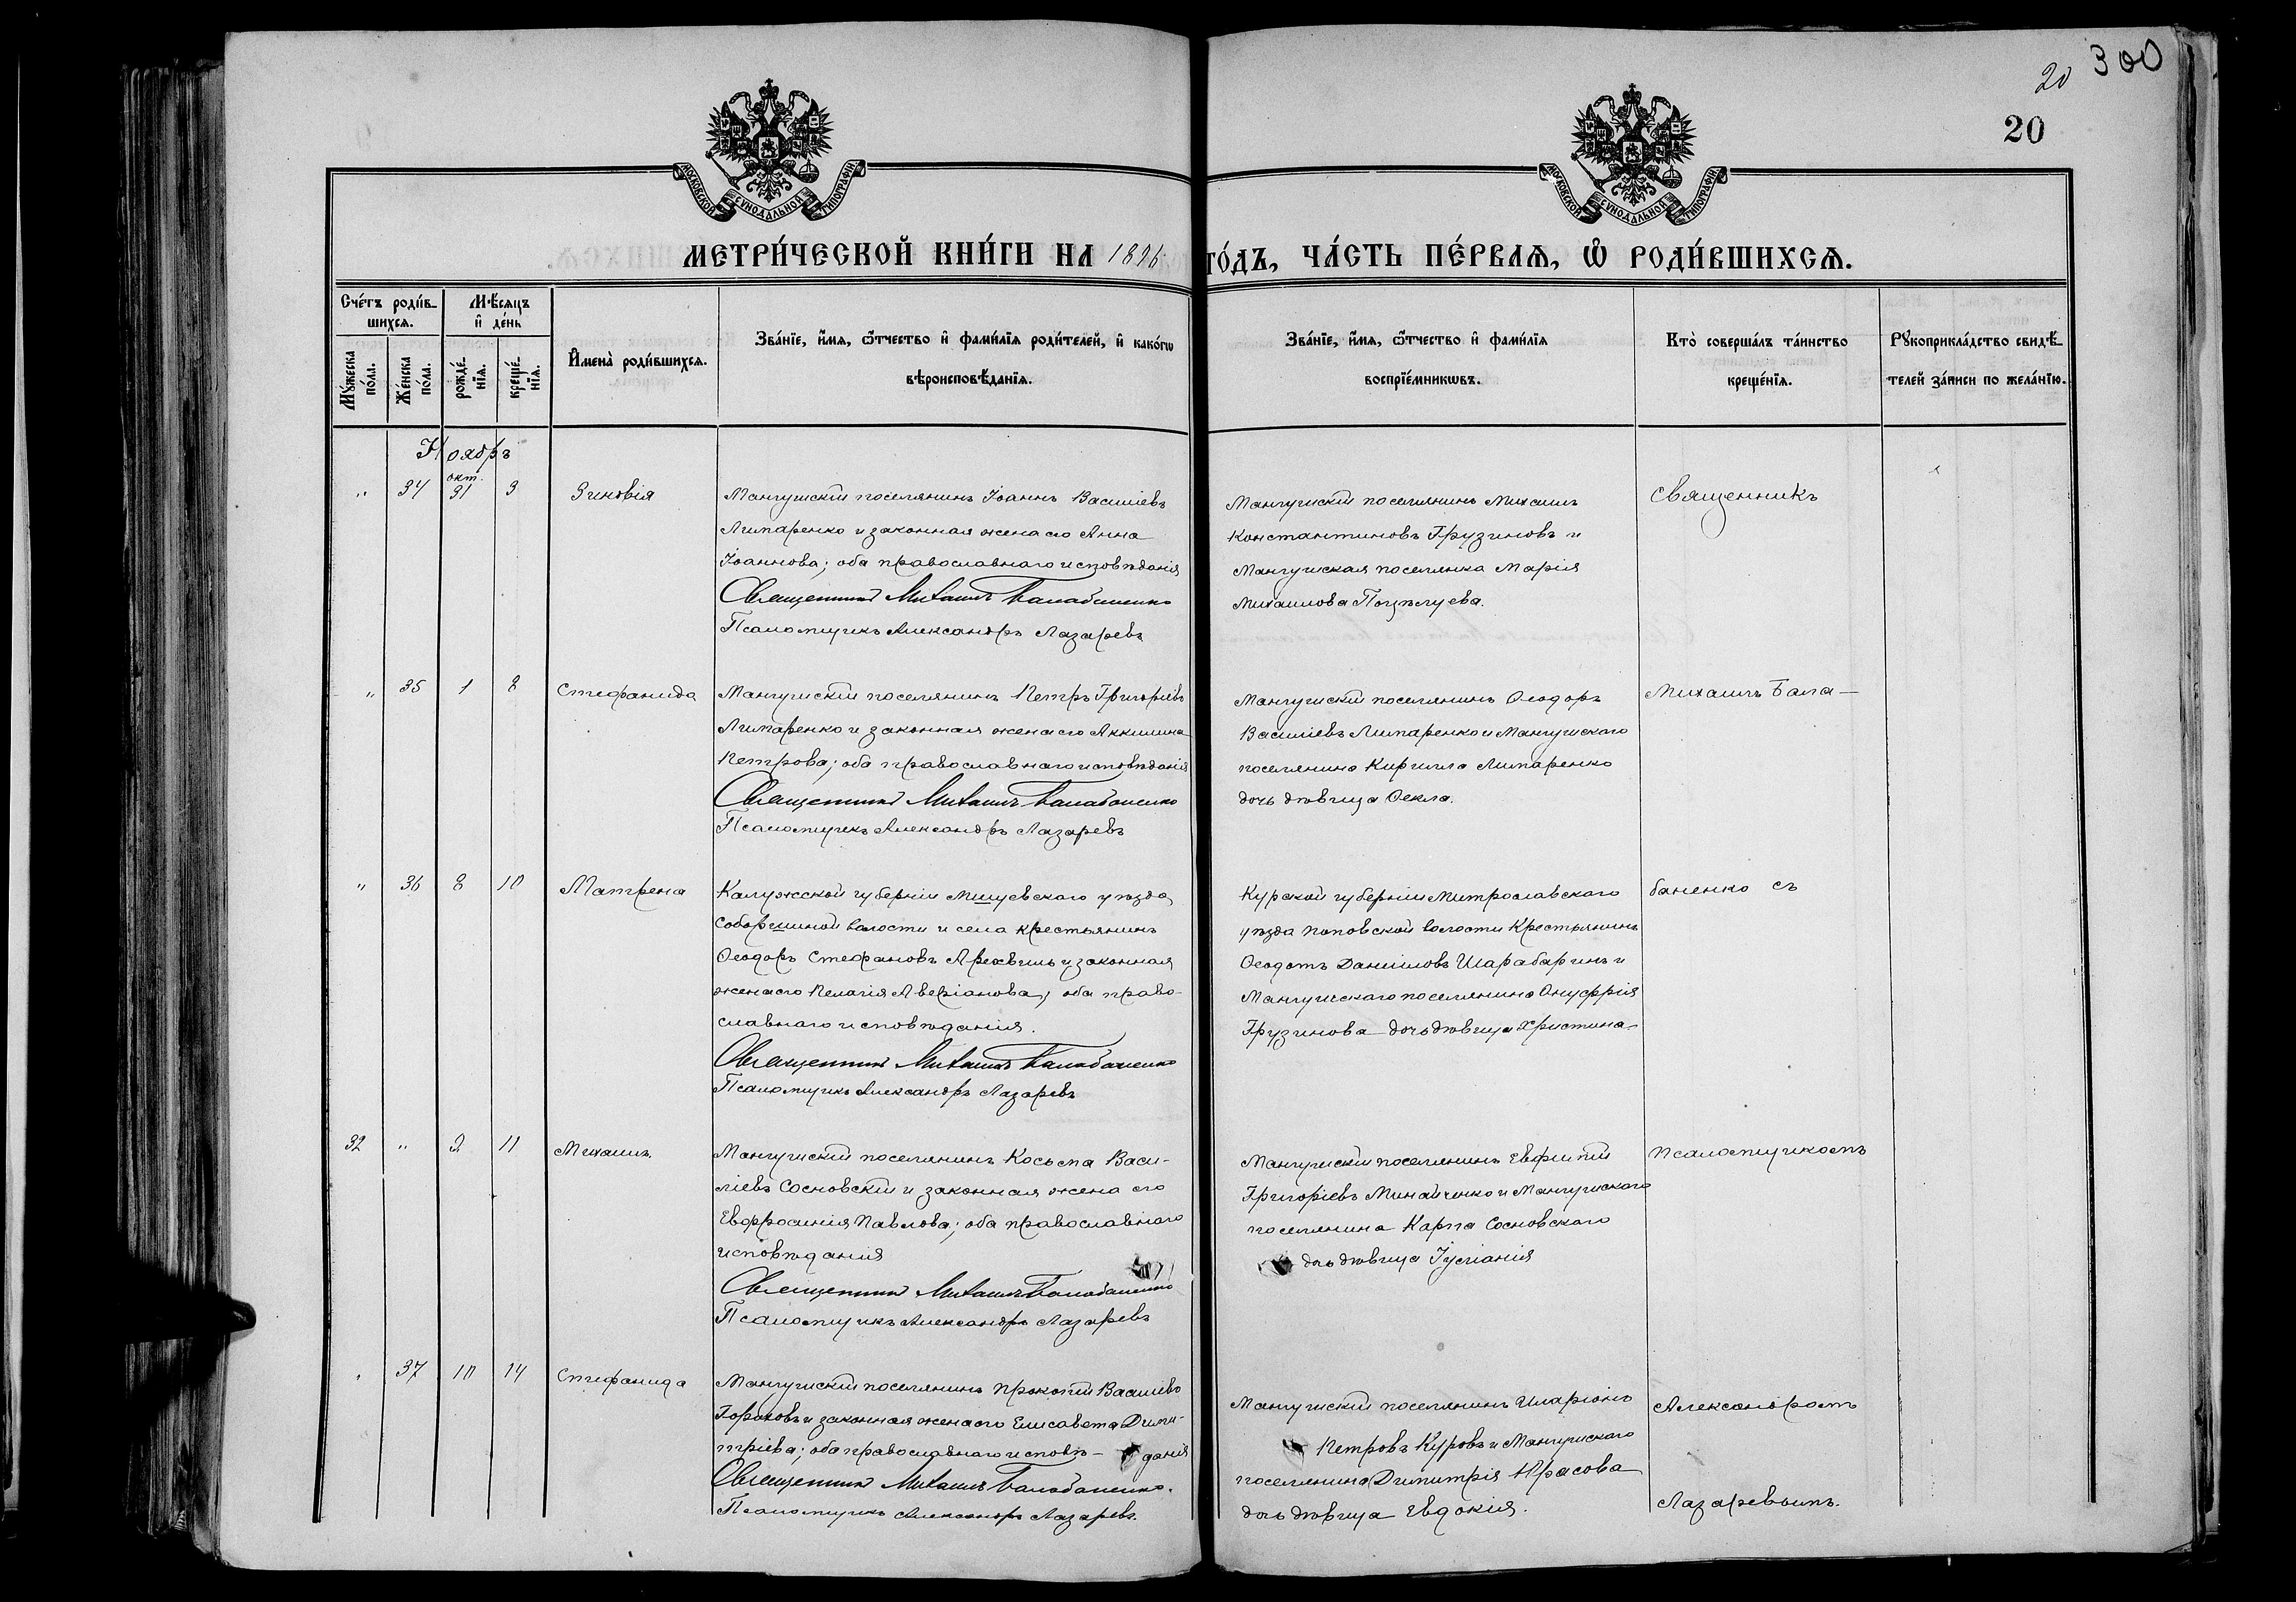 300
20
20
МОСКОВСКОЙ СѴНОДАЛЬНОЙ ТИПОГРАФІИ
МОСКОВСКОЙ СѴНОДАЛЬНОЙ ТИПОГРАФІИ
МЕТРИ́ЧЕСКОЙ КНИ́ГИ НА 1896 ГО́ДЪ, ЧА́СТЬ ПЕ́РВАѦ, Ѽ РОДИ́ВШИХСѦ.
Сче́тъ роди́в-
шихсѧ.
Мꙋ́жеска по́ла.
Же́нска по́ла.
Мѣ́сѧцъ
и҆ де́нь
рожде́-
нїѧ.
креще́-
нїѧ.
И҆мена̀ роди́вшихсѧ.
Зва́нїе, и҆́мѧ, ѻ҆́тчество и҆ фами́лїѧ роди́телей, и҆ како́гѡ
вѣроисповѣ́данїѧ.
Зва́нїе, и҆́мѧ, ѻ҆́тчество и҆ фами́лїѧ
воспрїе́мникѡвъ.
Кто̀ соверша́лъ та́инство
креще́нїѧ.
Рꙋкоприкла́дство свидѣ́-
телей за́писи по жела́нїю.
Ноябрь
" 34 окт. 31 3 Зиновія
Мангушскій поселянинъ Іоаннъ Василіевъ
Липаренко и законная жена его Анна
Іоаннова; оба православнаго исповѣданія
Священникъ Михаилъ Балабаненко
Псаломщикъ Александръ Лазаревъ
Мангушскій поселянинъ Михаилъ
Константиновъ Грузиновъ и
Мангушская поселянка Марія
Михаилова Поцѣлуева.
Священникъ
" 35 1 8 Стефанида
Мангушскій поселянинъ Петръ Григоріевъ
Липаренко и законная жена его Акилина
Петрова; оба православнаго исповѣданія
Священникъ Михаилъ Балабаненко
Псаломщикъ Александръ Лазаревъ
Мангушскій поселянинъ Ѳеодоръ
Василіевъ Липаренко и Мангушскаго
поселянина Кирилла Липаренко
дочь дѣвица Ѳекла.
Михаилъ Бала-
" 36 8 10 Матрена
Калужской губерніи уѣзда,
волости и села крестьянинъ
Ѳеодоръ Стефановъ и законная
жена его Пелагія Аверіанова; оба право-
славнаго исповѣданія.
Священникъ Михаилъ Балабаненко
Псаломщикъ Александръ Лазаревъ
Курской губерніи
уѣзда Поповской волости Крестьянинъ
Ѳеодотъ Даніиловъ Шарабаринъ и
Мангушскаго поселянина Онуфрія
Грузинова дочь дѣвица Христина
баненко съ
32 " 2 11 Михаилъ.
Мангушскій поселянинъ Косьма Васи-
ліевъ Сосновскій и законная жена его
Евфросинія Павлова; оба православнаго
исповѣданія
Священникъ Михаилъ Балабаненко
Псаломщикъ Александръ Лазаревъ
Мангушскій поселянинъ Евфимій
Григоріевъ Минайченко и Мангушскаго
поселянина Карпа Сосновскаго
дочь дѣвица Іуліанія
псаломщикомъ
" 37 10 14 Стефанида
Мангушскій поселянинъ Прокопій Василіевъ
и законная жена его Елисавета Дими-
тріева; оба православнаго исповѣ- данія
Священникъ Михаилъ Балабаненко.
Псаломщикъ Александръ Лазаревъ.
Мангушскій поселянинъ Иларіонъ
Петровъ Куровъ и Мангушскаго
поселянина Димитрія
дочь дѣвица Евдокія.
Александромъ
Лазаревымъ.